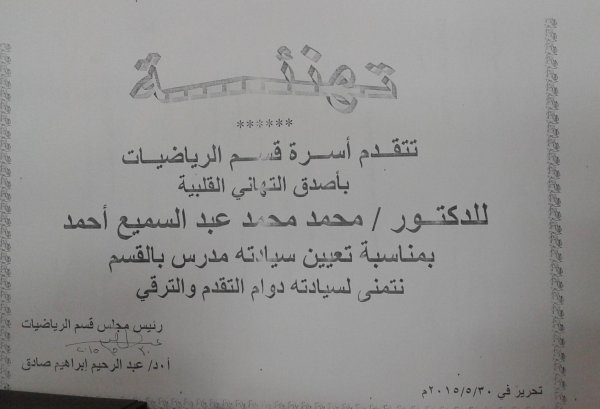 تهنئة
******
تتقدم أسرة قسم الرياضيات
بأصدق التهاني القلبية
للدكتور / محمد محمد عبد السميع أحمد
بمناسبة تعيين سيادته مدرس بالقسم
نتمنى لسيادته دوام التقدم والترقي
رئيس مجلس قسم الرياضيات
أ.د/ عبد الرحيم إبراهيم صادق
تحرير في ٢٠١٥/٥/٣٠م